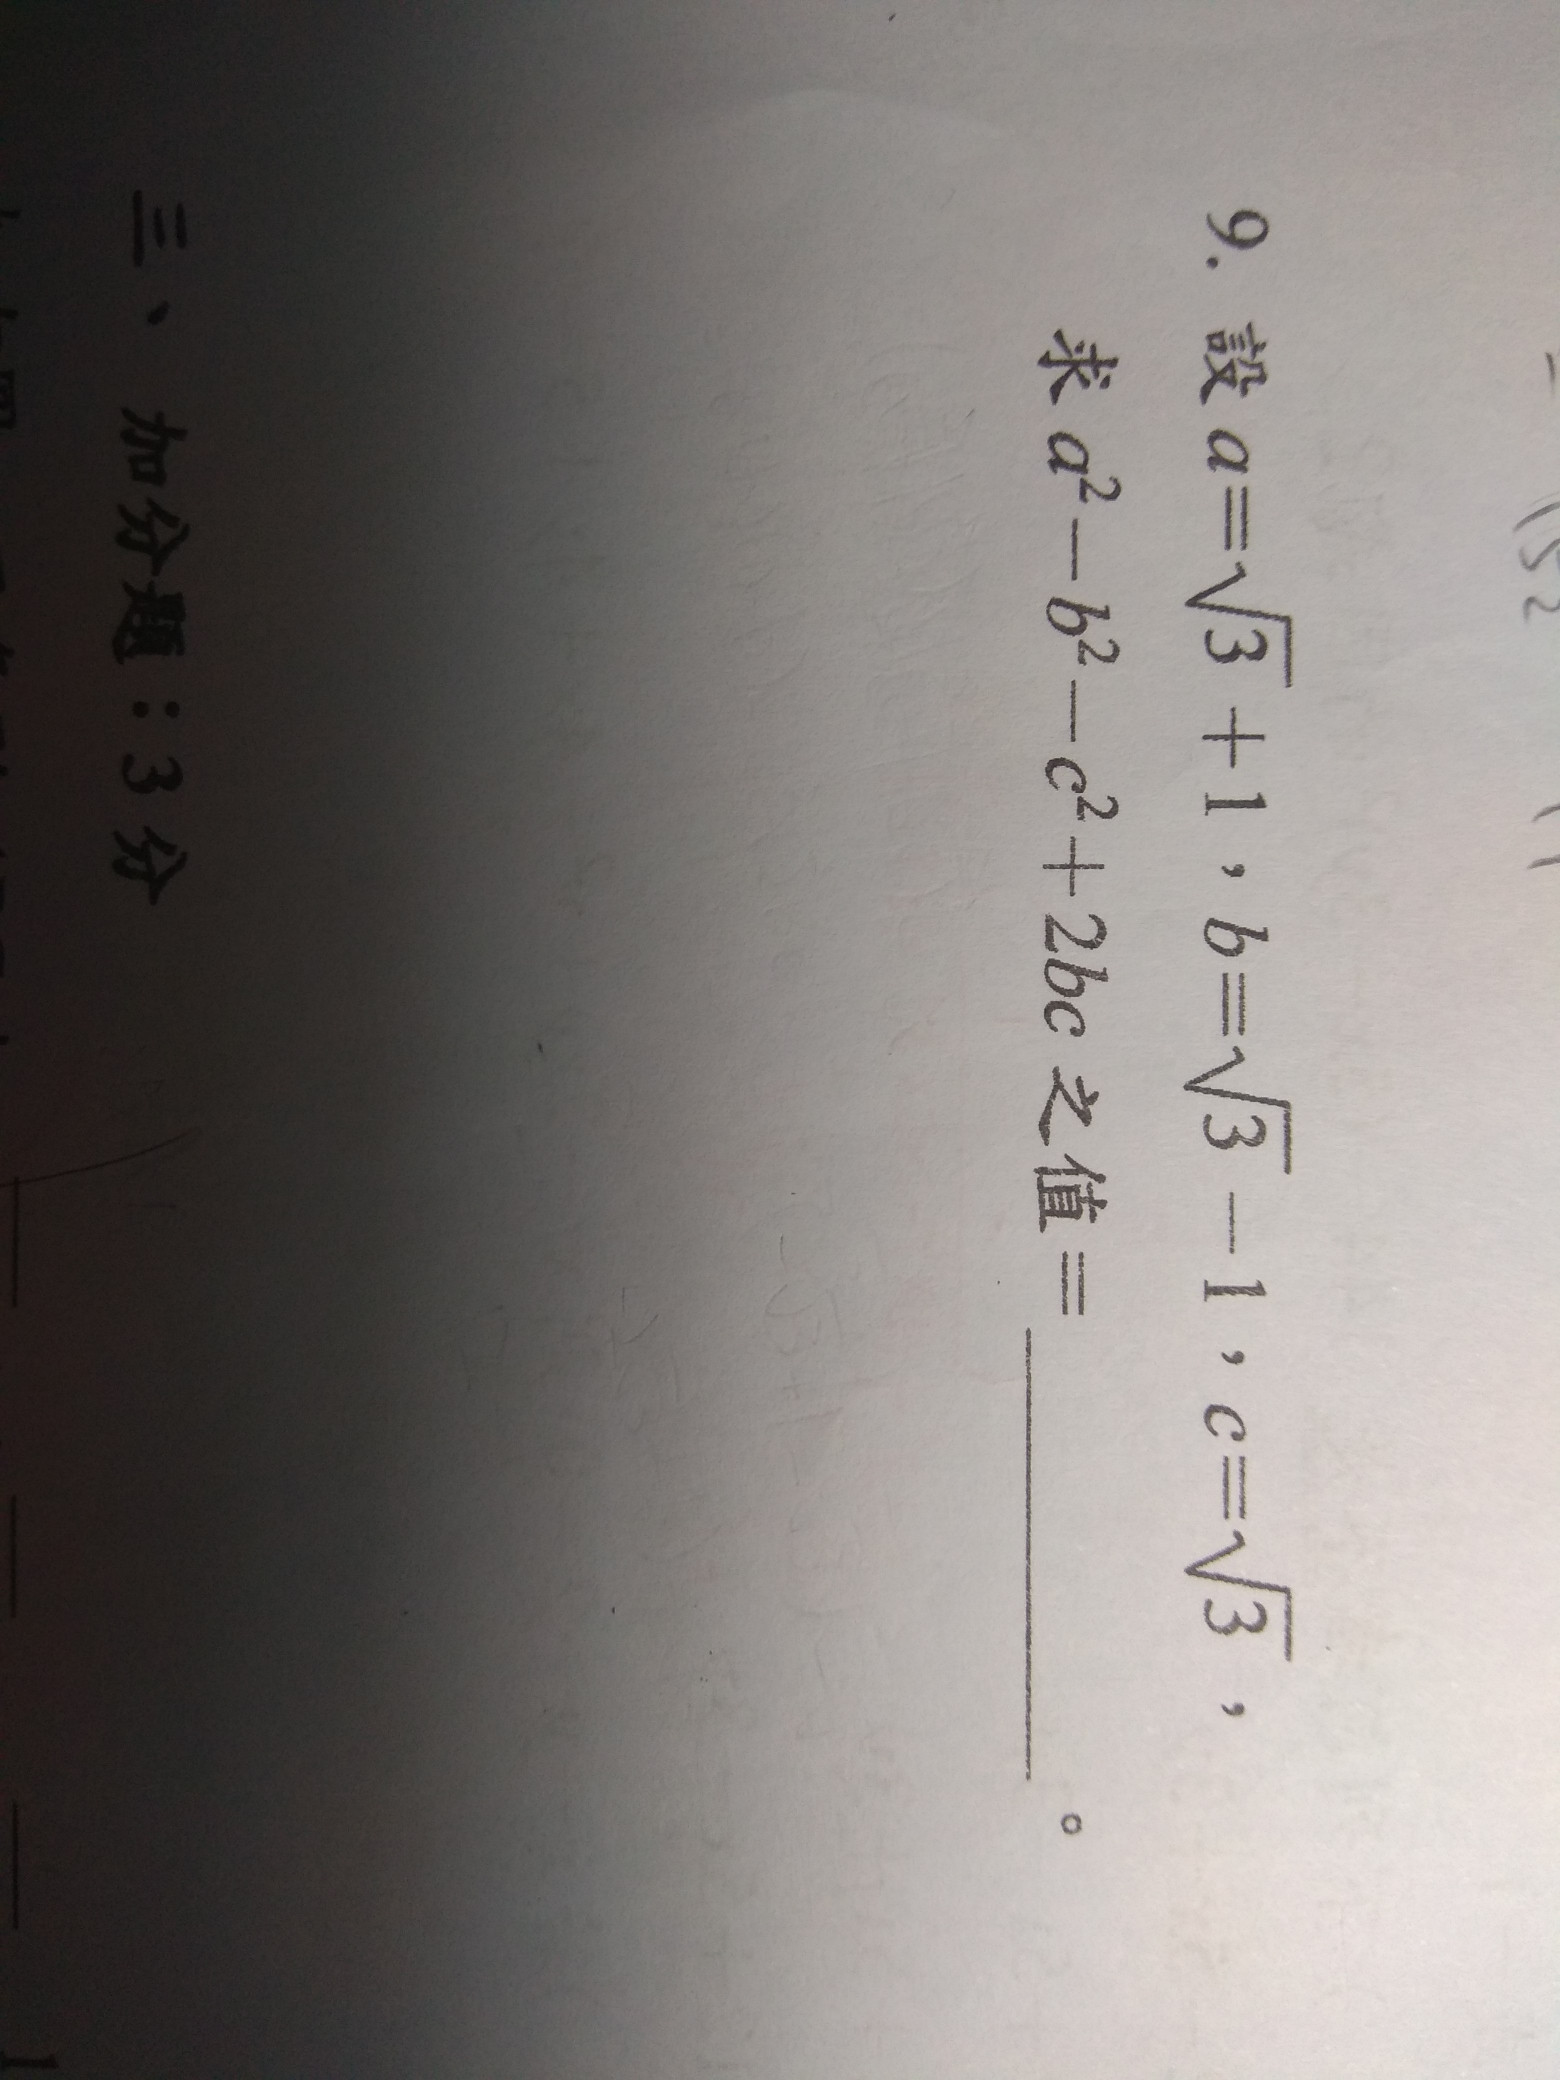 9. 設 a=√3+1，b=√3-1，c=√3，
求 a²-b²-c²+2bc 之值=________。
三、加分題：3 分